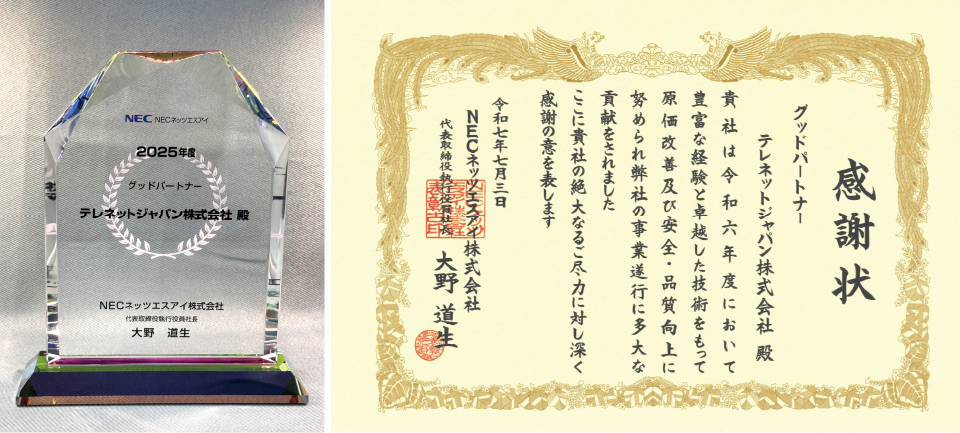 NEC NECネッツエスアイ
2025年度
グッドパートナー
テレネットジャパン株式会社 殿
NECネッツエスアイ株式会社
代表取締役執行役員社長
大野 道生
感謝状
グッドパートナー
テレネットジャパン株式会社 殿
貴社は令和六年度において
豊富な経験と卓越した技術をもって
原価改善及び安全・品質向上に
努められ弊社の事業遂行に多大な
貢献をされました
ここに貴社の絶大なるご尽力に対し深く
感謝の意を表します
令和七年七月三日
NECネッツエスアイ株式会社
代表取締役執行役員社長 大野 道生